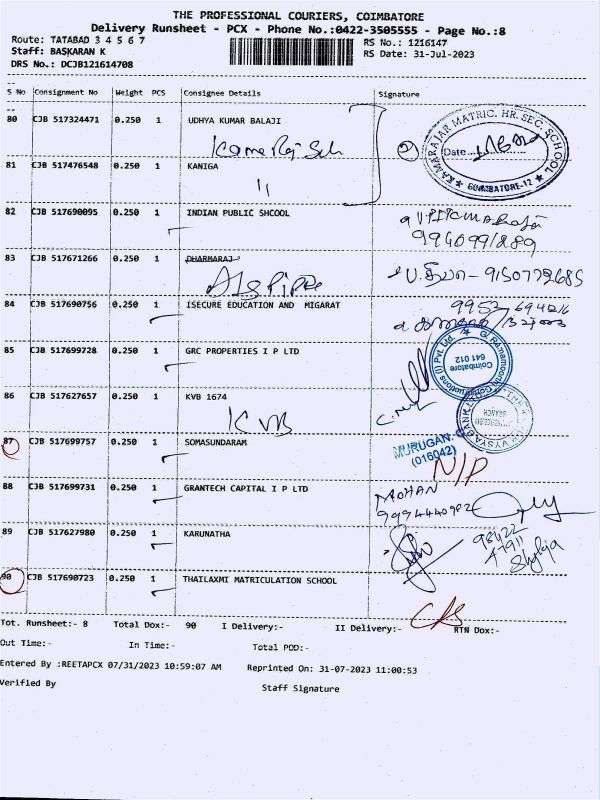 THE PROFESSIONAL COURIERS, COIMBATORE
Delivery Runsheet - PCX - Phone No.:0422-3505555 - Page No.:8
Route: TATABAD 3 4 5 6 7 RS No.: 1216147
Staff: BASKARAN K RS Date: 31-Jul-2023
DRS No.: DCJB121614708
S No Consignment No Weight PCS Consignee Details Signature
80 CJB 517324471 0.250 1 UDHYA KUMAR BALAJI
KAMARAJAR MATRIC. HR. SEC. SCHOOL
Date
COIMBATORE-12
81 CJB 517476548 0.250 1 KANIGA
"
82 CJB 517690095 0.250 1 INDIAN PUBLIC SHCOOL
9940991289
83 CJB 517671266 0.250 1 DHARMARAJ
9150773685
84 CJB 517690756 0.250 1 ISECURE EDUCATION AND MIGARAT
85 CJB 517699728 0.250 1 GRC PROPERTIES I P LTD
Coimbatore
641 012
86 CJB 517627657 0.250 1 KVB 1674
KVB
MURUGAN.
(016042)
87 CJB 517699757 0.250 1 SOMASUNDARAM
N/P
88 CJB 517699731 0.250 1 GRANTECH CAPITAL I P LTD
MOHAN
9994440982
89 CJB 517627980 0.250 1 KARUNATHA
98422
47911
90 CJB 517690723 0.250 1 THAILAXMI MATRICULATION SCHOOL
Tot. Runsheet:- 8 Total Dox:- 90 I Delivery:- II Delivery:- RTN Dox:-
Out Time:- In Time:- Total POD:-
Entered By :REETAPCX 07/31/2023 10:59:07 AM Reprinted On: 31-07-2023 11:00:53
Verified By Staff Signature